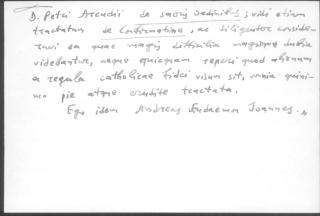 D. Petri Arcudii de sacris Ordinibus; vidi etiam
tractatum de Confirmatione, ac diligenter conside-
ravi ea quae magis difficilia magisque dubia
videbantur, neque quicquam reperi quod alienum
a regula catholicae fidei visum sit, omnia quini-
mo pie atque erudite tractata.
Ego idem Andreas Eudaemon Joannes.